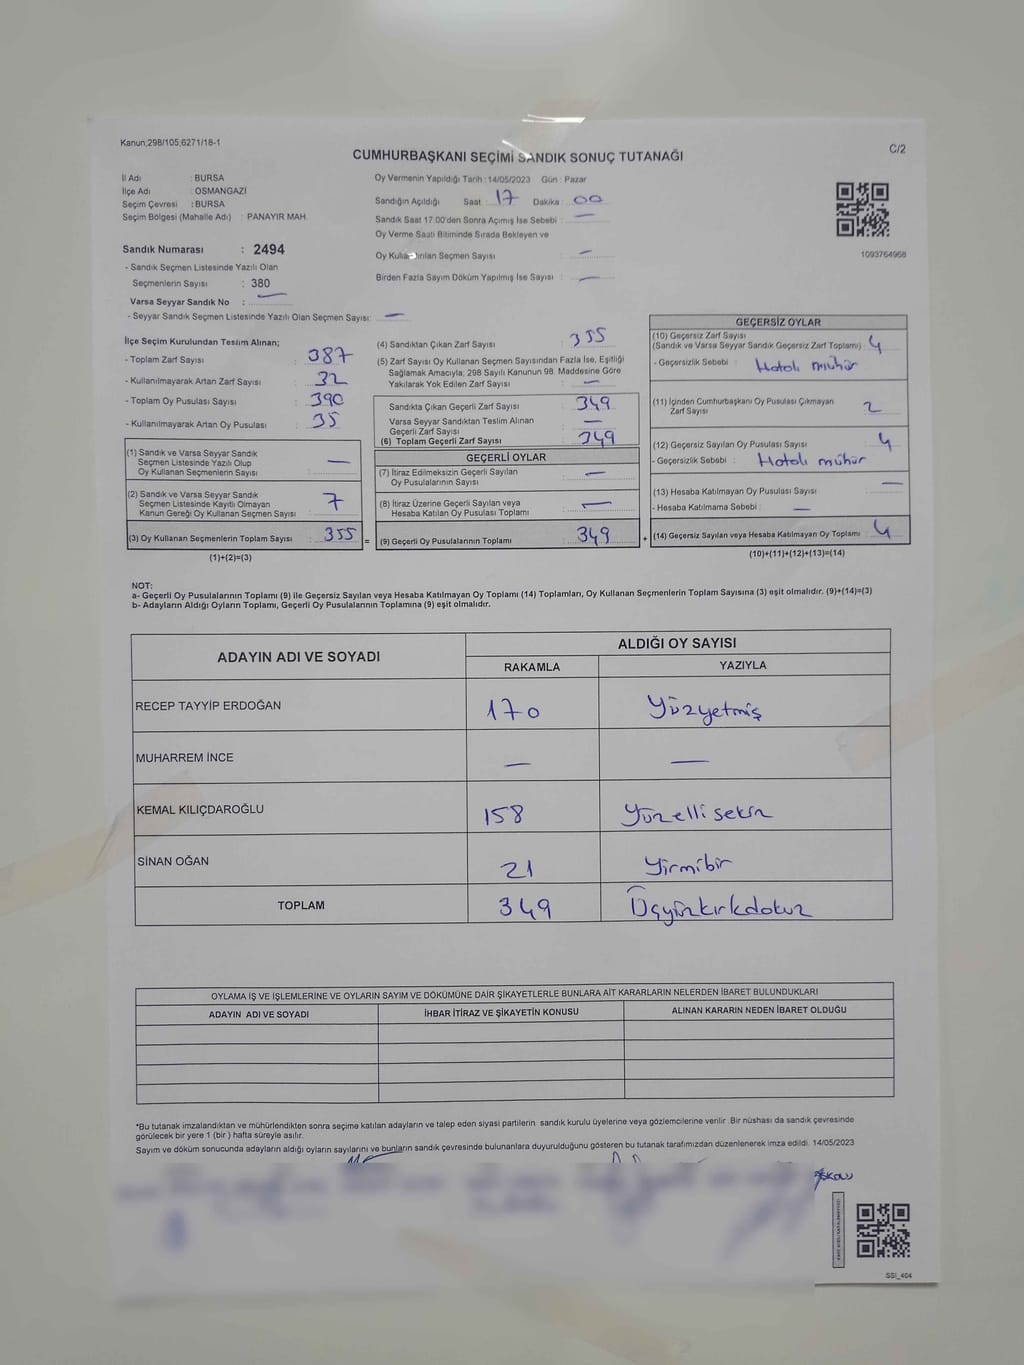 Kanun;298/105;6271/18-1
CUMHURBAŞKANI SEÇİMİ SANDIK SONUÇ TUTANAĞI
C/2
İl Adı : BURSA
İlçe Adı : OSMANGAZİ
Seçim Çevresi : BURSA
Seçim Bölgesi (Mahalle Adı) : PANAYIR MAH.
Oy Vermenin Yapıldığı Tarih : 14/05/2023 Gün : Pazar
Sandığın Açıldığı Saat : 17 Dakika : 00
Sandık Saat 17.00'den Sonra Açımış İse Sebebi : —
Oy Verme Saati Bitiminde Sırada Bekleyen ve
Oy Kullandırılan Seçmen Sayısı : —
Birden Fazla Sayım Döküm Yapılmış İse Sayısı : —
1093764968
Sandık Numarası : 2494
- Sandık Seçmen Listesinde Yazılı Olan
Seçmenlerin Sayısı : 380
Varsa Seyyar Sandık No : —
- Seyyar Sandık Seçmen Listesinde Yazılı Olan Seçmen Sayısı: —
İlçe Seçim Kurulundan Teslim Alınan;
- Toplam Zarf Sayısı : 387
- Kullanılmayarak Artan Zarf Sayısı : 32
- Toplam Oy Pusulası Sayısı : 390
- Kullanılmayarak Artan Oy Pusulası : 35
(1) Sandık ve Varsa Seyyar Sandık
Seçmen Listesinde Yazılı Olup
Oy Kullanan Seçmenlerin Sayısı : —
(2) Sandık ve Varsa Seyyar Sandık
Seçmen Listesinde Kayıtlı Olmayan
Kanun Gereği Oy Kullanan Seçmen Sayısı : 7
(3) Oy Kullanan Seçmenlerin Toplam Sayısı : 355
(1)+(2)=(3)
(4) Sandıktan Çıkan Zarf Sayısı : 355
(5) Zarf Sayısı Oy Kullanan Seçmen Sayısından Fazla İse, Eşitliği
Sağlamak Amacıyla, 298 Sayılı Kanunun 98. Maddesine Göre
Yakılarak Yok Edilen Zarf Sayısı : —
Sandıkta Çıkan Geçerli Zarf Sayısı : 349
Varsa Seyyar Sandıktan Teslim Alınan
Geçerli Zarf Sayısı : —
(6) Toplam Geçerli Zarf Sayısı : 349
GEÇERLİ OYLAR
(7) İtiraz Edilmeksizin Geçerli Sayılan
Oy Pusulalarının Sayısı : —
(8) İtiraz Üzerine Geçerli Sayılan veya
Hesaba Katılan Oy Pusulası Toplamı : —
= (9) Geçerli Oy Pusulalarının Toplamı : 349
GEÇERSİZ OYLAR
(10) Geçersiz Zarf Sayısı
(Sandık ve Varsa Seyyar Sandık Geçersiz Zarf Toplamı) : 4
- Geçersizlik Sebebi : Hatalı mühür
(11) İçinden Cumhurbaşkanı Oy Pusulası Çıkmayan
Zarf Sayısı : 2
(12) Geçersiz Sayılan Oy Pusulası Sayısı : 4
- Geçersizlik Sebebi : Hatalı mühür
(13) Hesaba Katılmayan Oy Pusulası Sayısı : —
- Hesaba Katılmama Sebebi : —
+ (14) Geçersiz Sayılan veya Hesaba Katılmayan Oy Toplamı : 4
(10)+(11)+(12)+(13)=(14)
NOT:
a- Geçerli Oy Pusulalarının Toplamı (9) ile Geçersiz Sayılan veya Hesaba Katılmayan Oy Toplamı (14) Toplamları, Oy Kullanan Seçmenlerin Toplam Sayısına (3) eşit olmalıdır. (9)+(14)=(3)
b- Adayların Aldığı Oyların Toplamı, Geçerli Oy Pusulalarının Toplamına (9) eşit olmalıdır.
ADAYIN ADI VE SOYADI
ALDIĞI OY SAYISI
RAKAMLA YAZIYLA
RECEP TAYYİP ERDOĞAN 170 Yüzyetmiş
MUHARREM İNCE — —
KEMAL KILIÇDAROĞLU 158 Yüzellisekiz
SİNAN OĞAN 21 Yirmibir
TOPLAM 349 Üçyüzkırkdokuz
OYLAMA İŞ VE İŞLEMLERİNE VE OYLARIN SAYIM VE DÖKÜMÜNE DAİR ŞİKAYETLERLE BUNLARA AİT KARARLARIN NELERDEN İBARET BULUNDUKLARI
ADAYIN ADI VE SOYADI İHBAR İTİRAZ VE ŞİKAYETİN KONUSU ALINAN KARARIN NEDEN İBARET OLDUĞU
*Bu tutanak imzalandıktan ve mühürlendikten sonra seçime katılan adayların ve talep eden siyasi partilerin sandık kurulu üyelerine veya gözlemcilerine verilir. Bir nüshası da sandık çevresinde
görülecek bir yere 1 (bir ) hafta süreyle asılır.
Sayım ve döküm sonucunda adayların aldığı oyların sayılarını ve bunların sandık çevresinde bulunanlara duyurulduğunu gösteren bu tutanak tarafımızdan düzenlenerek imza edildi. 14/05/2023
SSI_404